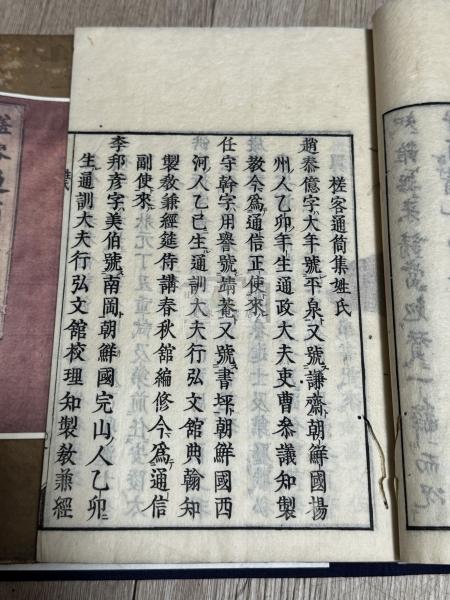 槎客通筒集姓氏
趙泰億字大年號平泉又號謙齋朝鮮國揚
州人乙卯年生通政大夫吏曹參議知製
教今爲通信正使來
任守幹字用譽號靖菴又號書坪朝鮮國西
河人乙巳生通訓大夫行弘文館典翰知
製教兼經筵侍講春秋館編修今爲通信
副使來
李邦彥字美伯號南岡朝鮮國完山人乙卯
生通訓大夫行弘文館校理知製教兼經